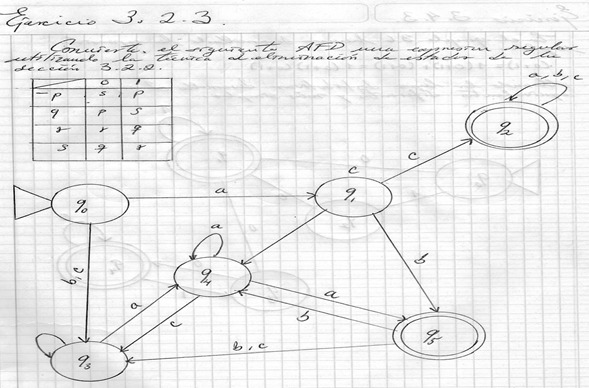 Ejercicio 3.2.3.
Convierta el siguiente AFD una expresion regular
utilizando la tecnica de eliminación de estados de la
sección 3.2.2.
0 1
→p s p
q p s
r r q
s q r
a, b, c
q2
c
c
q0
a
q1
a
b, c
q4
a
b
a
c
b
q5
b, c
q3